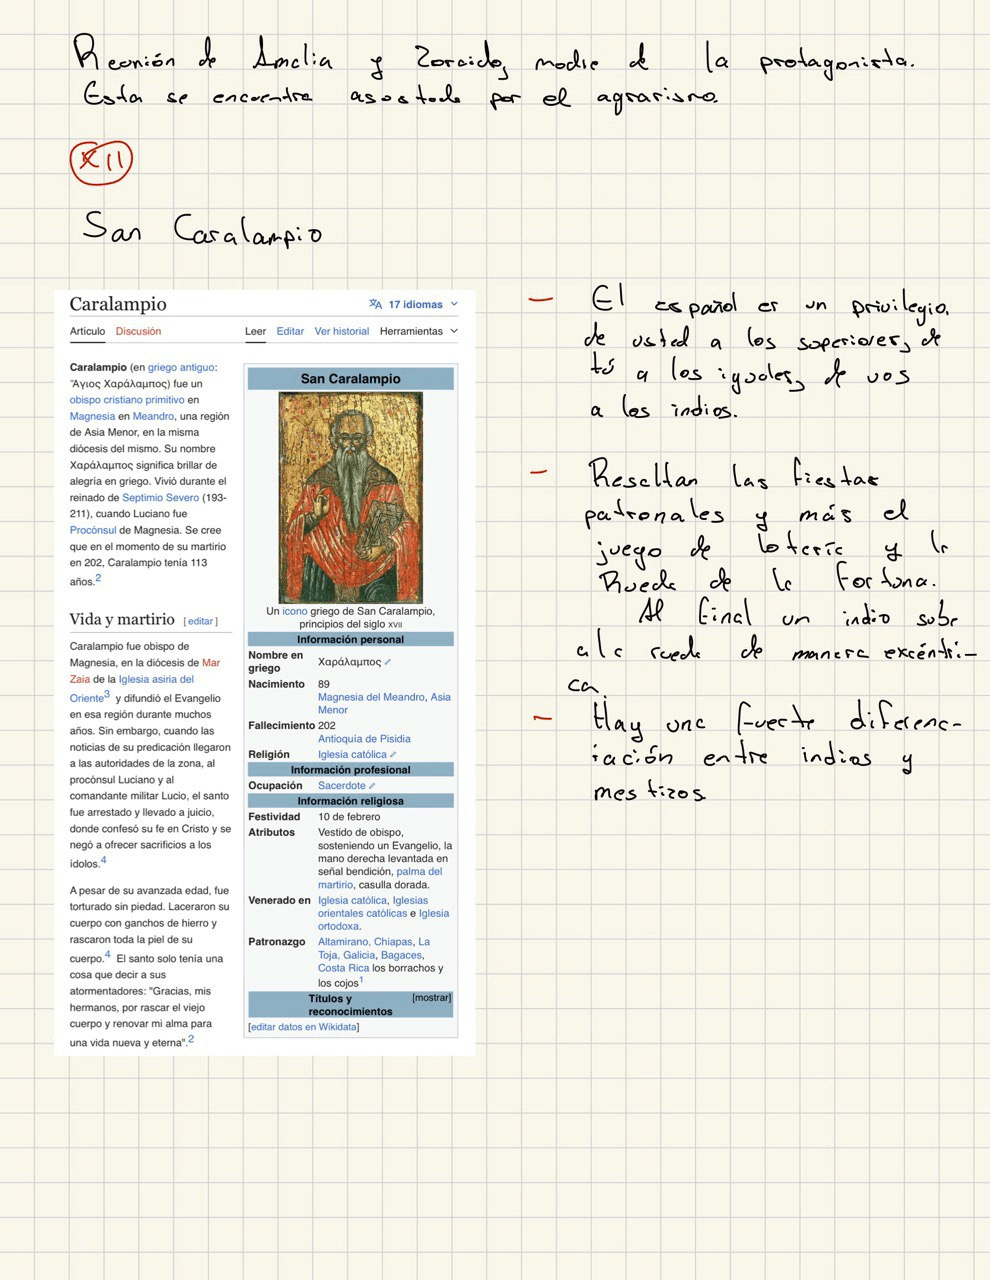 Reunión de Amelia y Zoraida, madre de la protagonista.
Esta se encuentra asostada por el agrarismo.
XII
San Caralampio
Caralampio
17 idiomas
Artículo Discusión Leer Editar Ver historial Herramientas
Caralampio (en griego antiguo:
Ἅγιος Χαράλαμπος) fue un
obispo cristiano primitivo en
Magnesia en Meandro, una región
de Asia Menor, en la misma
diócesis del mismo. Su nombre
Χαράλαμπος significa brillar de
alegría en griego. Vivió durante el
reinado de Septimio Severo (193-
211), cuando Luciano fue
Procónsul de Magnesia. Se cree
que en el momento de su martirio
en 202, Caralampio tenía 113
años.2
Vida y martirio [editar]
Caralampio fue obispo de
Magnesia, en la diócesis de Mar
Zaia de la Iglesia asiria del
Oriente3 y difundió el Evangelio
en esa región durante muchos
años. Sin embargo, cuando las
noticias de su predicación llegaron
a las autoridades de la zona, al
procónsul Luciano y al
comandante militar Lucio, el santo
fue arrestado y llevado a juicio,
donde confesó su fe en Cristo y se
negó a ofrecer sacrificios a los
ídolos.4
A pesar de su avanzada edad, fue
torturado sin piedad. Laceraron su
cuerpo con ganchos de hierro y
rascaron toda la piel de su
cuerpo.4 El santo solo tenía una
cosa que decir a sus
atormentadores: "Gracias, mis
hermanos, por rascar el viejo
cuerpo y renovar mi alma para
una vida nueva y eterna".2
San Caralampio
Un icono griego de San Caralampio,
principios del siglo XVII
Información personal
Nombre en
griego
Χαράλαμπος
Nacimiento 89
Magnesia del Meandro, Asia
Menor
Fallecimiento 202
Antioquía de Pisidia
Religión Iglesia católica
Información profesional
Ocupación Sacerdote
Información religiosa
Festividad 10 de febrero
Atributos Vestido de obispo,
sosteniendo un Evangelio, la
mano derecha levantada en
señal bendición, palma del
martirio, casulla dorada.
Venerado en Iglesia católica, Iglesias
orientales católicas e Iglesia
ortodoxa.
Patronazgo Altamirano, Chiapas, La
Toja, Galicia, Bagaces,
Costa Rica los borrachos y
los cojos1
Títulos y
reconocimientos
[mostrar]
[editar datos en Wikidata]
- El español es un privilegio.
de usted a los superiores, de
tú a los iguales, de vos
a los indios.
- Resaltan las fiestas
patronales y más el
juego de lotería y la
Rueda de la Fortuna.
Al final un indio sube
a la rueda de manera excéntri-
ca.
- Hay una fuerte diferenc-
iación entre indios y
mestizos